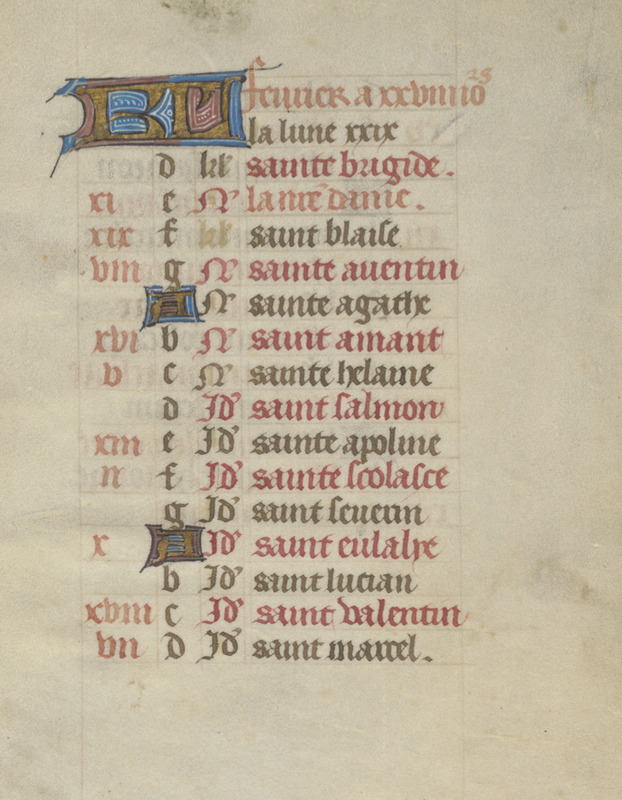 KL feurier a xxviii iō 28
la lune xxix
d kl' sainte brigide.
xi e N' la nr̄e dame.
xix f kl' saint blaise
viii g N' sainte auentin
A N' sainte agathe
xvi b N' saint amant
v c N' sainte helaine
d Id' saint salmon
xiii e Id' sainte apoline
ii f Id' sainte scolasce
g Id' saint seuerin
x A Id' saint eulalye
b Id' saint lucian
xviii c Id' saint valentin
vii d Id' saint marcel.